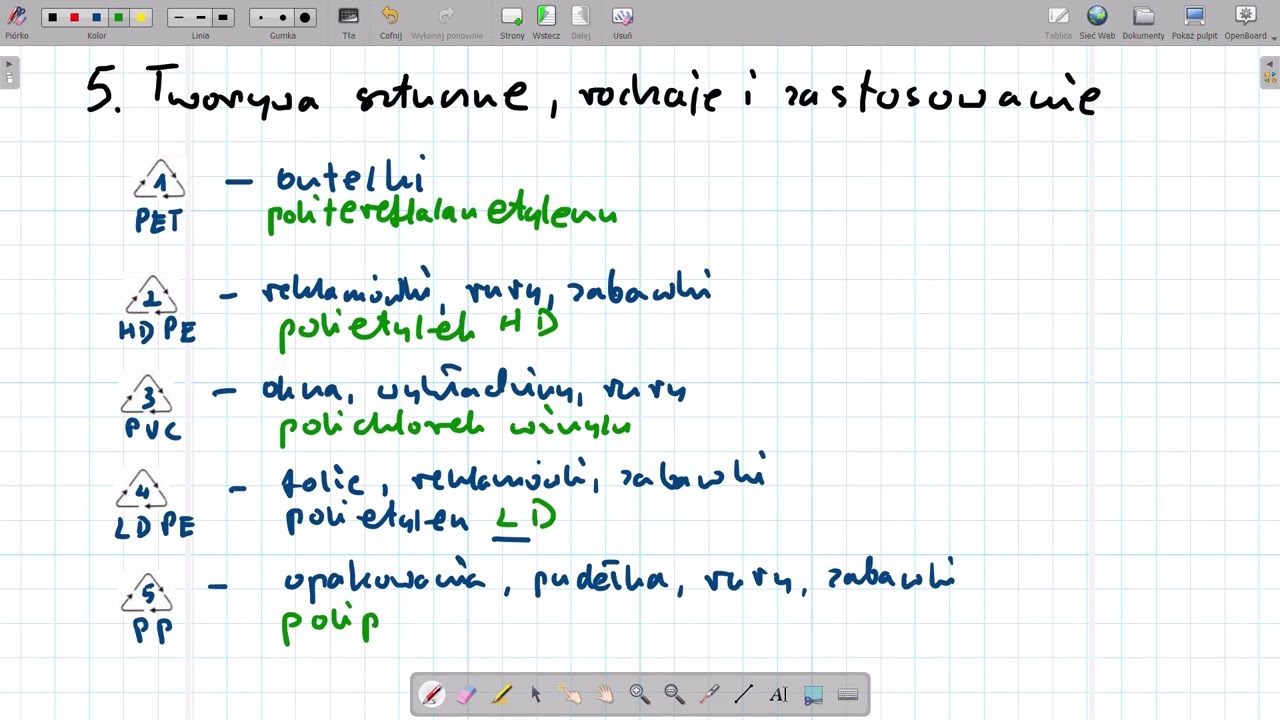 Pióro
Kolor
Linia
Gumka
Tła
Cofnij
Wykonaj ponownie
Strony
Wstecz
Dalej
Usuń
Tablica
Sieć Web
Dokumenty
Pokaż pulpit
OpenBoard
5. Tworzywa sztuczne, rodzaje i zastosowanie
1 – butelki
PET politereftalan etylenu
2 – reklamówki, rury, zabawki
HDPE polietylen HD
3 – okna, wykładziny, rury
PVC polichlorek winylu
4 – folie, reklamówki, zabawki
LDPE polietylen LD
5 – opakowania, pudełka, rury, zabawki
PP polip
AI